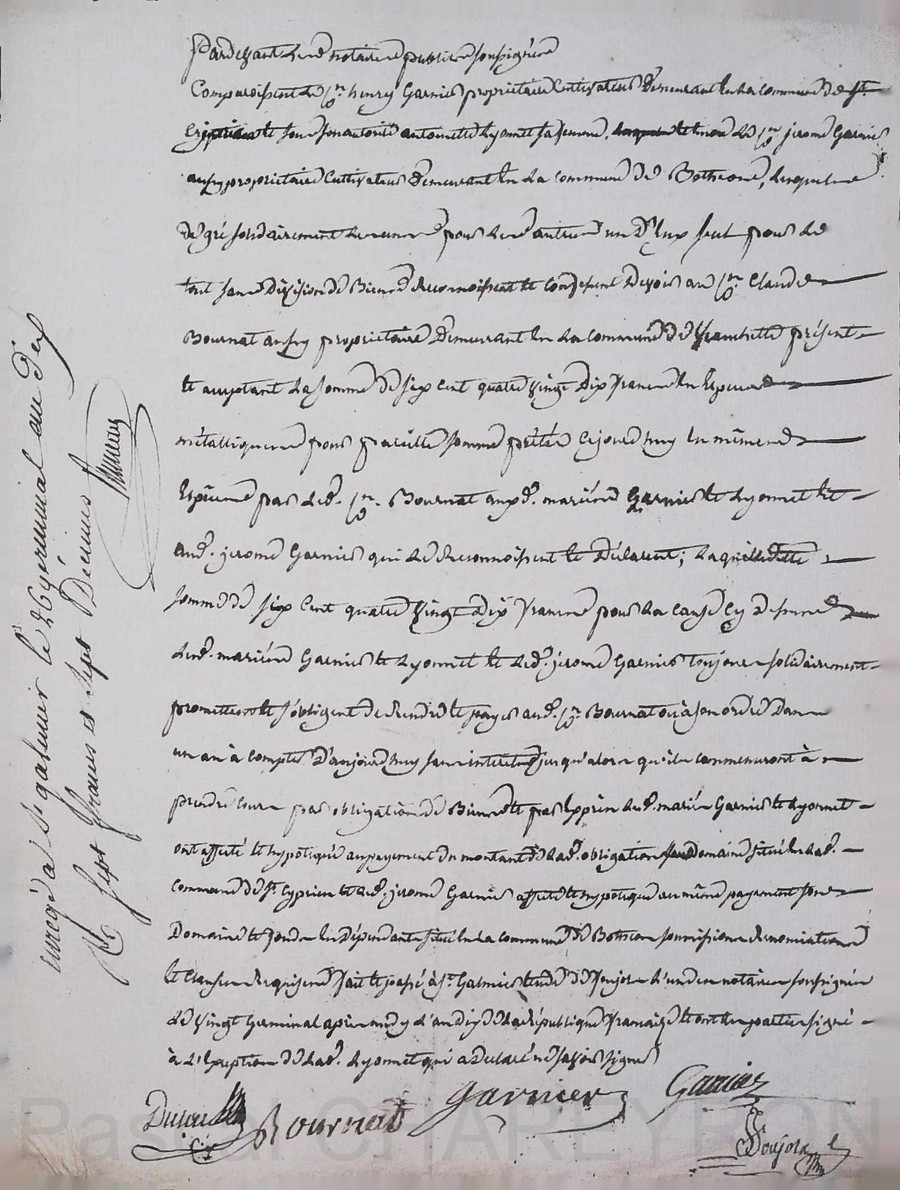 Pardevant les notaires publics soussignés
Comparoissent le Cn henry Garnier propriétaire Cultivateur Demeurant En la commune de St
Cyprien et sous son autorité antoinette Lyonnet sa femme, le Cn jerome Garnier
aussy propriétaire Cultivateur Demeurant En la commune de Bothéon, lesquels
de gré solidairement les uns pour les autres un d'Eux seul pour le
tout sans Division de Biens Reconnoissent et Confessent Devoir au Cn Claude
Bournat aussy propriétaire Demeurant En la commune de présent
et acceptant la somme de six cent quatre vingt dix francs En Espèces
métalliques pour pareille somme prêtée cejourd'huy En mêmes
Espèces par led. Cn Bournat auxd. mariés Garnier et Lyonnet et
aud. jerome Garnier qui le Reconnoissent et Déclarent; laquelle ditte
somme de six Cent quatre vingt dix francs pour la cause Cy Dessus
lesd. mariés Garnier et Lyonnet et led. jerome Garnier toujours solidairement
promettent et s'obligent de Rendre et payer aud. Cn Bournat ou à son ordre Dans
un an à compter D'aujourd'huy sans intérêts jusqu'alors qu'ils commenceront à
prendre cours par obligation de Biens et par Exprès lesd. mariés Garnier et Lyonnet
ont affecté et hypotéqué au payement du montant de lad. obligation Domaine situé En lad.
Commune de St. Cyprien et led. jerome Garnier affecte et hypotéque au même payement son
Domaine et fonds En Dépendants situé En la commune de Bothéon soumissions Renonciations
et Clauses Requises fait et passé à St. Galmier Etude de Soujol l'un des notaires soussignés
le vingt Germinal après midy l'an dix de la République française et ont les parties signé
à L'Exception de lad. Lyonnet qui a Déclaré ne savoir signer
Bournat Garnier Garnier
Soujol
enreg.é à St galmier le 26 germinal an Dix
R. sept francs et sept Décimes
Pascal CHARLEYRON